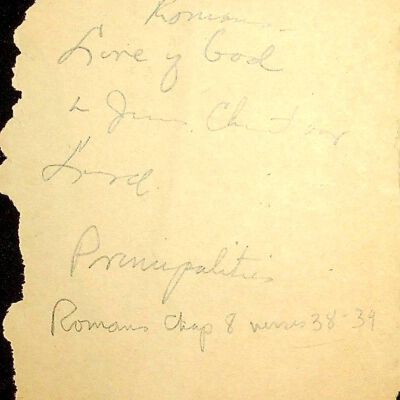 Romans
Love of God
in Jesus Christ our
Lord.
Principalities
Romans Chap 8 verses 38-39